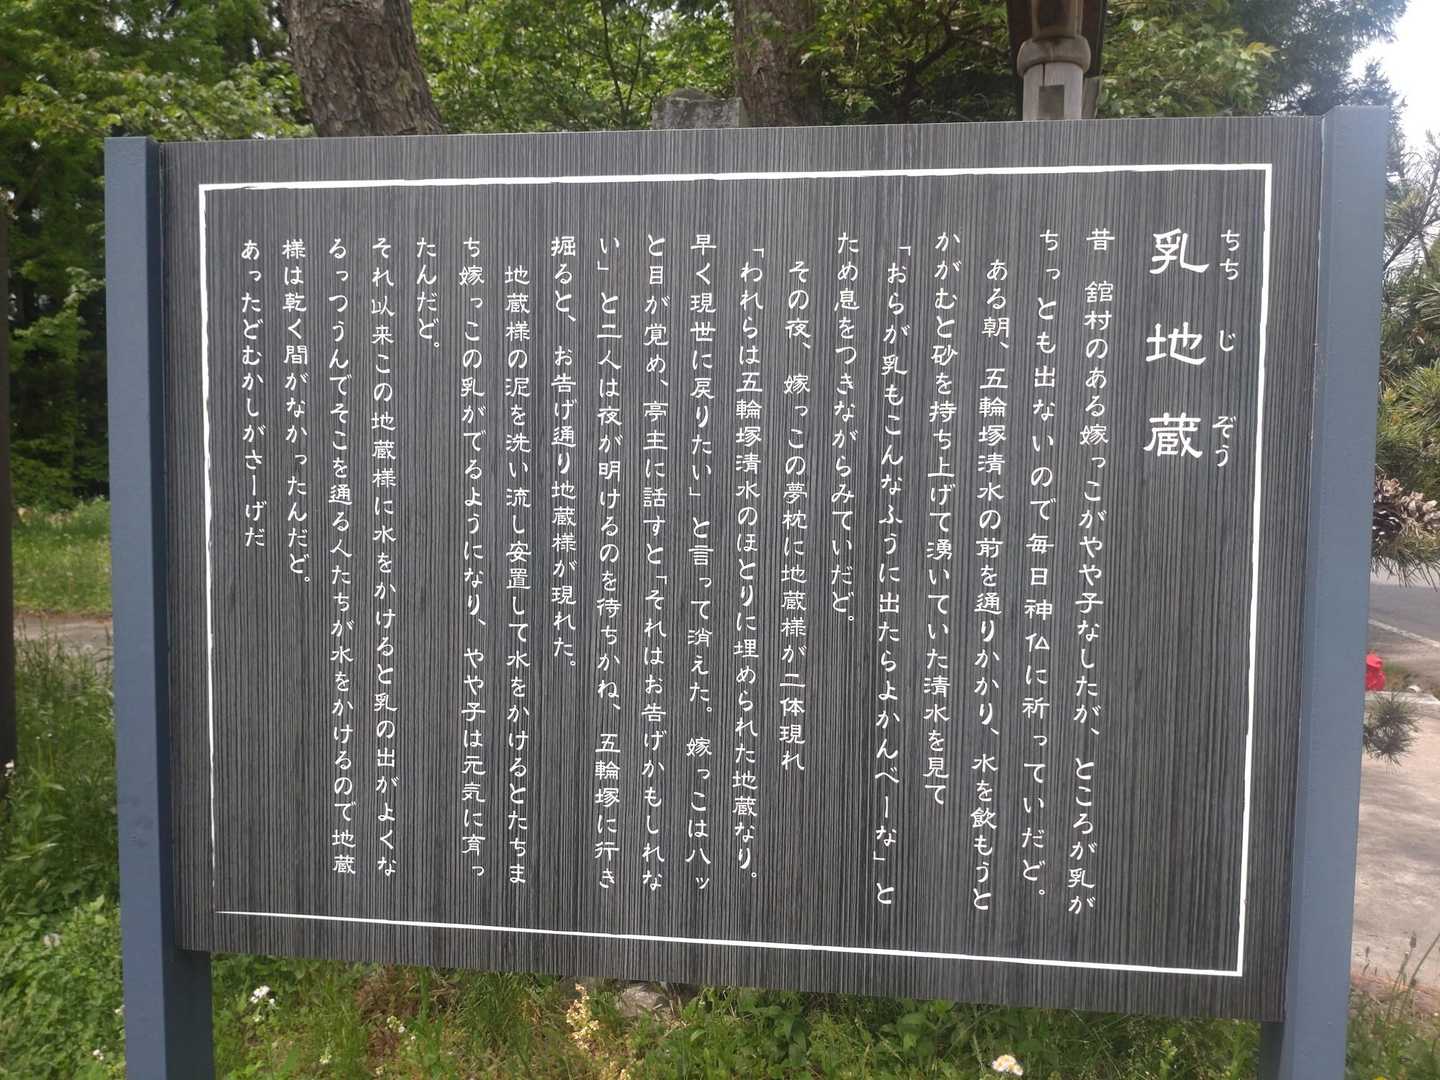 乳地蔵
ちち じ ぞう
昔 舘村のある嫁っこがやや子なしたが、ところが乳が
ちっとも出ないので毎日神仏に祈っていだど。
ある朝、五輪塚清水の前を通りかかり、水を飲もうと
かがむと砂を持ち上げて湧いていた清水を見て
「おらが乳もこんなふうに出たらよかんべーな」と
ため息をつきながらみていだど。
その夜、嫁っこの夢枕に地蔵様が二体現れ
「われらは五輪塚清水のほとりに埋められた地蔵なり。
早く現世に戻りたい」と言って消えた。嫁っこはハッ
と目が覚め、亭主に話すと「それはお告げかもしれな
い」と二人は夜が明けるのを待ちかね、五輪塚に行き
掘ると、お告げ通り地蔵様が現れた。
地蔵様の泥を洗い流し安置して水をかけるとたちま
ち嫁っこの乳がでるようになり、やや子は元気に育っ
たんだど。
それ以来この地蔵様に水をかけると乳の出がよくな
るっつうんでそこを通る人たちが水をかけるので地蔵
様は乾く間がなかったんだど。
あったどむかしがさーげだ